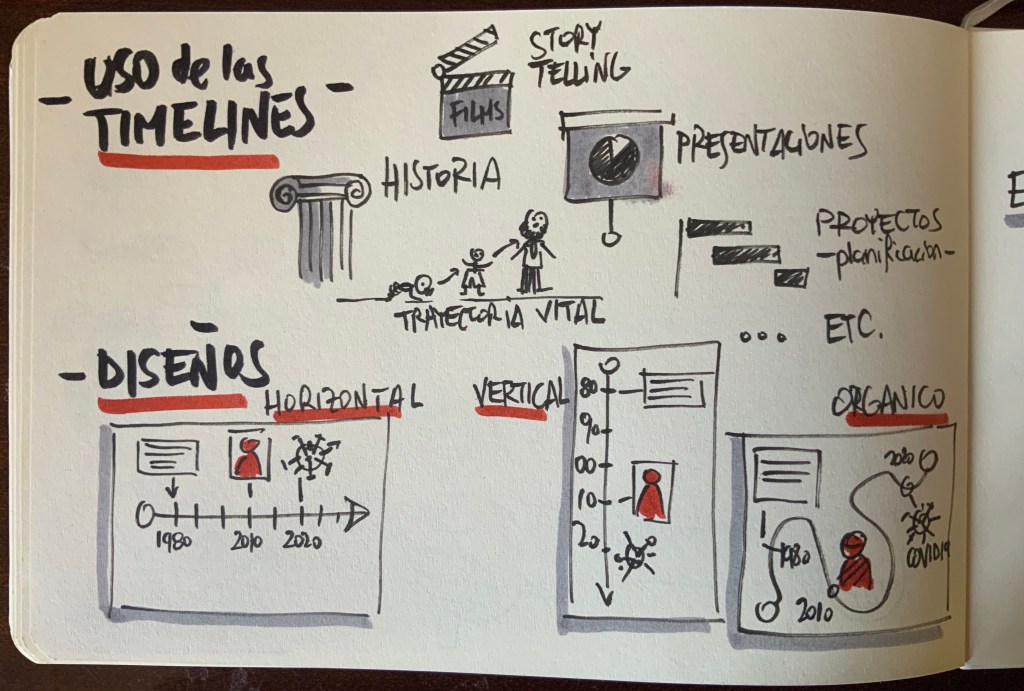 - USO de las -
TIMELINES
FILMS
STORY
TELLING
PRESENTACIONES
HISTORIA
PROYECTOS
-planificación-
TRAYECTORIA VITAL
... ETC.
- DISEÑOS
HORIZONTAL
1980 2010 2020
VERTICAL
80
90
00
10
20
ORGANICO
2020
1980
COVID19
2010
E